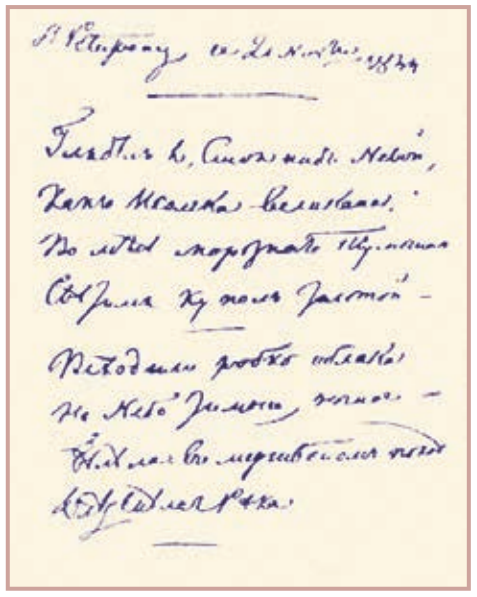 1844
Глядѣлъ я, стоя надъ Невой,
Какъ Исаака великана
Во мглѣ морознаго тумана
куполъ золотой –
Всходили робко облака
На небо зимнее, ночное –
Бѣлѣла въ мертвенномъ покоѣ
Оледенѣлая рѣка